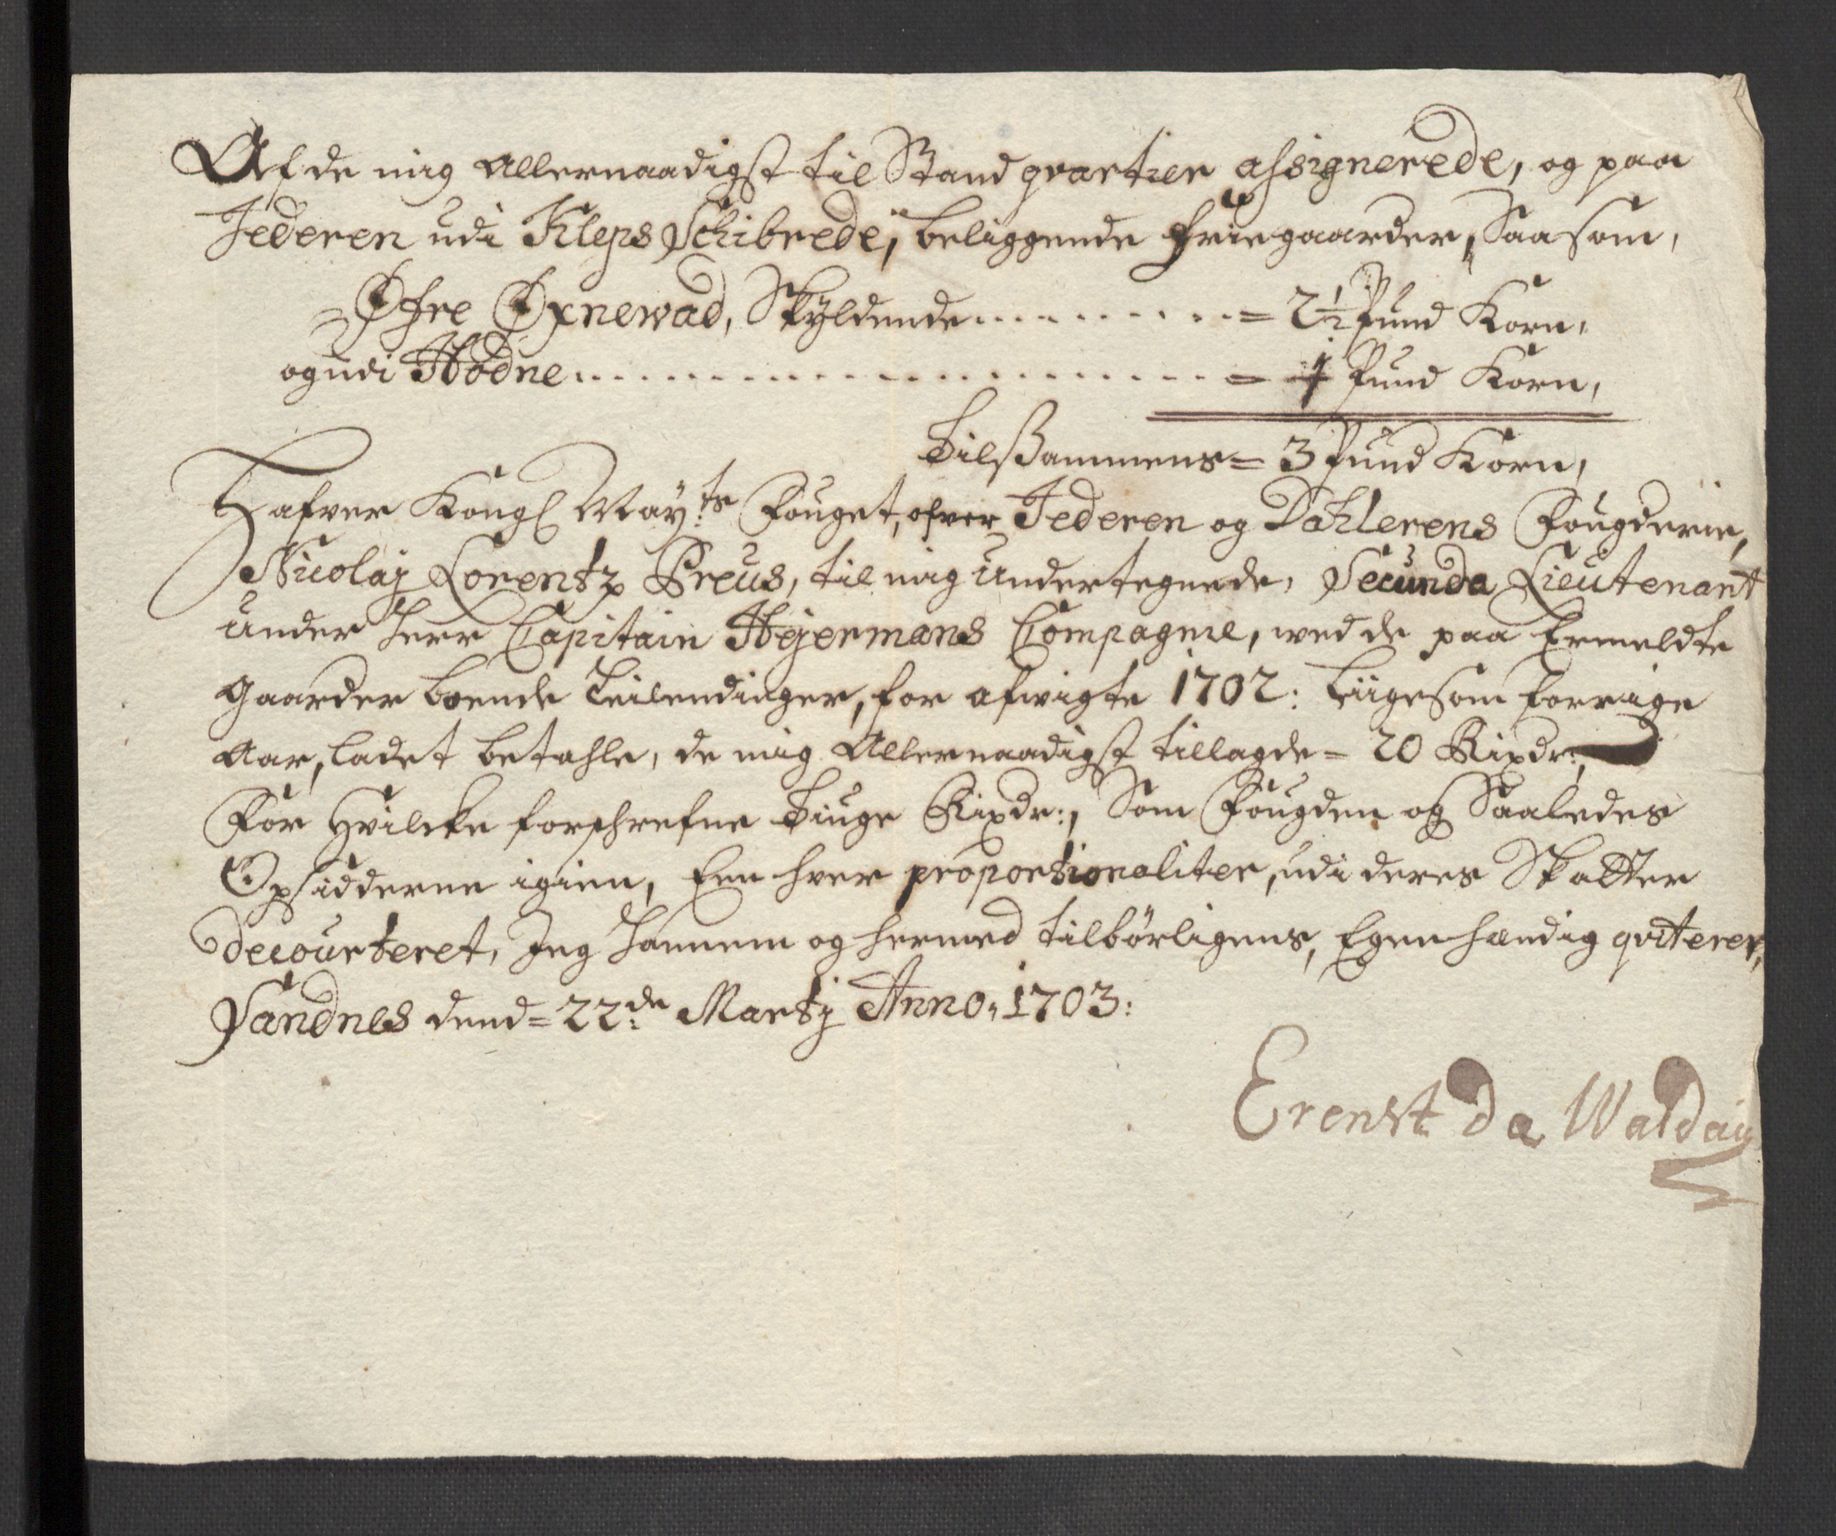 Af de mig Allernaadigst til Stand qvartier assignerede, og paa
Jederen udi Kleps Schibrede, beliggende frie gaarder, Saasom,
Øfre Øxnewad, Skyldende .......... = 2½ Pund Korn,
og udi Hodne .......................... = Pund Korn,
Tilsammens = 3 Pund Korn,
Hafver Kongl May:ts Fouget, ofver Jederen og Dahlerens Fougderie,
Nicolaj Lorentz Preus, til mig Undertegnede, Secunda Lieutenant
Under Herr Capitain Hejermans Compagnie, wed de paa Ermeldte
Gaarder boende Leilendinger, for afvigte 1702: Liigesom forrige
Aar, ladet betahle, de mig Allernaadigst tillagde = 20 Rixdr:,
For Hvilcke forschrefne Tiuge Rixdr:, Som Fougden og Saaledes
Opsidderne igien, Een hver proportionaliter, udi deres Skatter
decourteret, Jeg Hannem og hermed tilbörligens, Egenhændig qviterer,
Sandnes dend = 22:de Martij Anno, 1703:
Erenst Da Walday